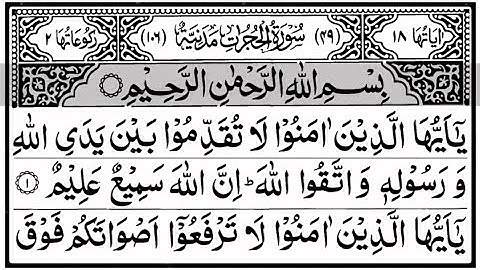 اٰیَاتُهَا ١٨ (٤٩) سُوْرَةُ الْحُجُرٰتِ مَدَنِيَّةٌ (١٠٦) رُكُوْعَاتُهَا ٢
بِسْمِ اللّٰهِ الرَّحْمٰنِ الرَّحِيْمِ
يٰۤاَيُّهَا الَّذِيْنَ اٰمَنُوْا لَا تُقَدِّمُوْا بَيْنَ يَدَیِ اللّٰهِ
وَ رَسُوْلِهٖ وَ اتَّقُوا اللّٰهَ ؕ اِنَّ اللّٰهَ سَمِيْعٌ عَلِيْمٌ ۝١
يٰۤاَيُّهَا الَّذِيْنَ اٰمَنُوْا لَا تَرْفَعُوْۤا اَصْوَاتَكُمْ فَوْقَ